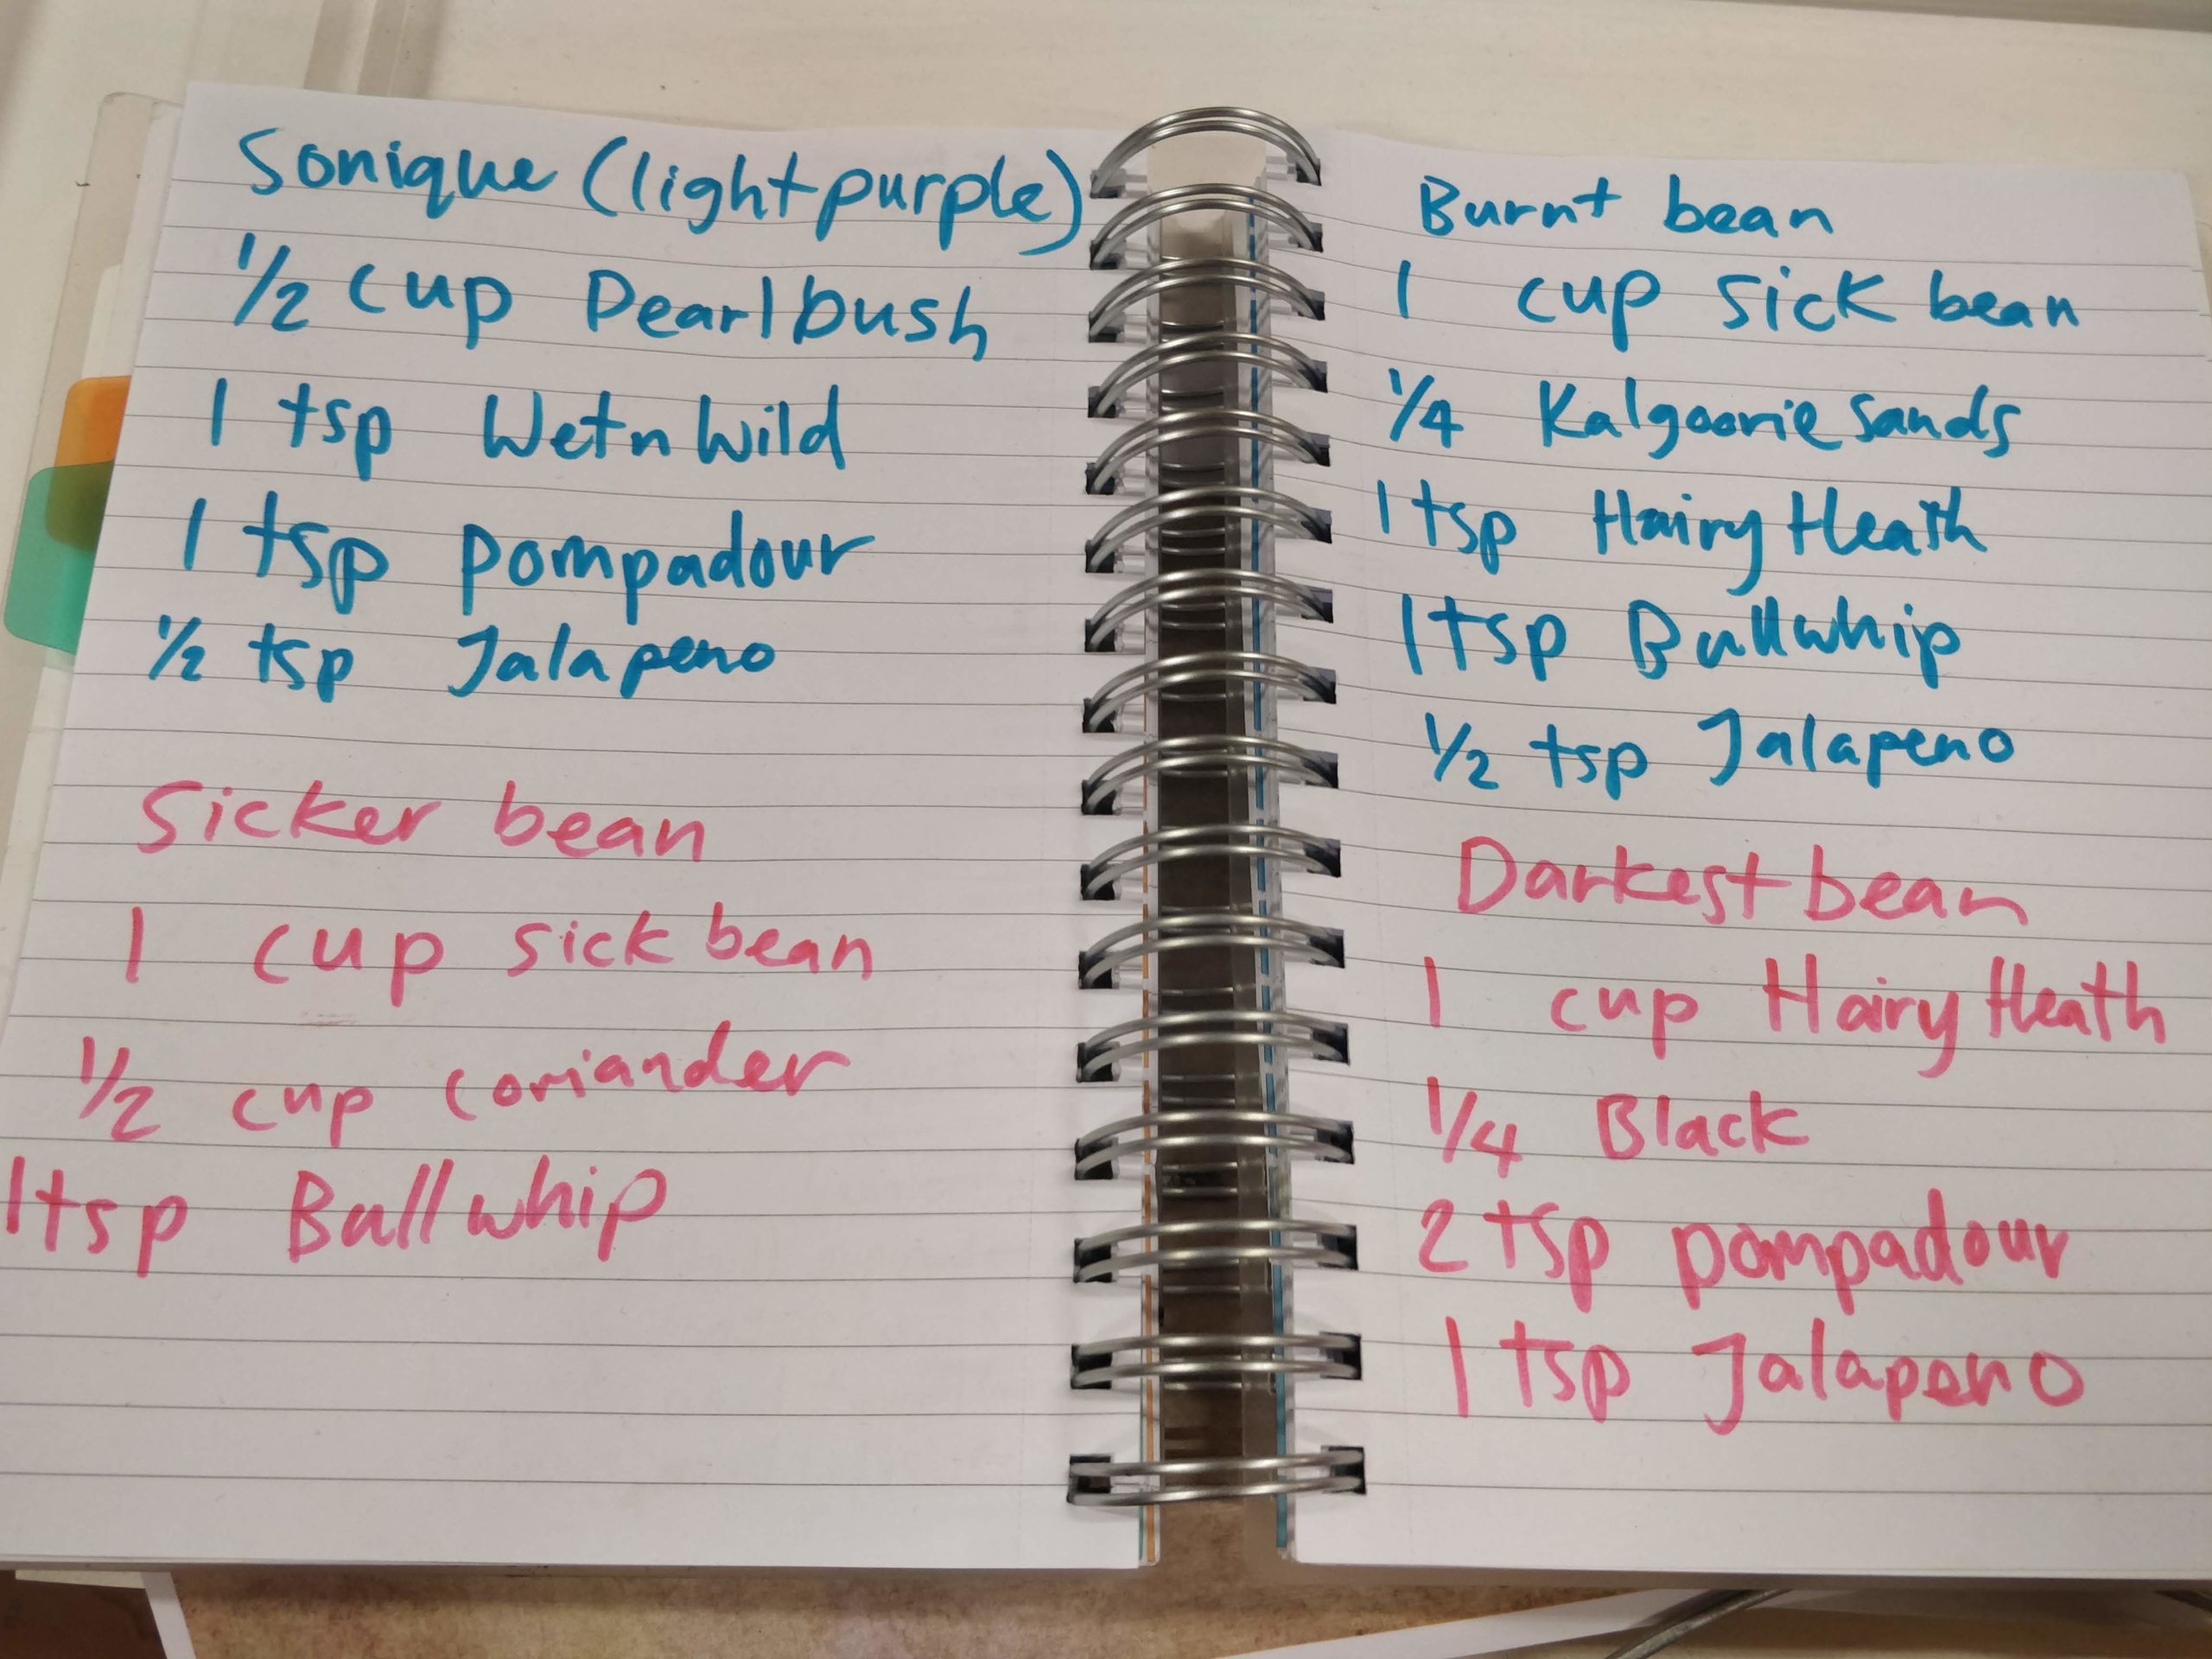 Sonique (light purple)
1/2 cup Pearlbush
1 tsp Wetnwild
1 tsp pompadour
1/2 tsp Jalapeno
Sicker bean
1 cup sick bean
1/2 cup coriander
1tsp Bullwhip
Burnt bean
1 cup sick bean
1/4 Kalgoorie sands
1tsp Hairy Heath
1tsp Bullwhip
1/2 tsp Jalapeno
Darkest bean
1 cup Hairy Heath
1/4 Black
2 tsp pompadour
1 tsp Jalapeno